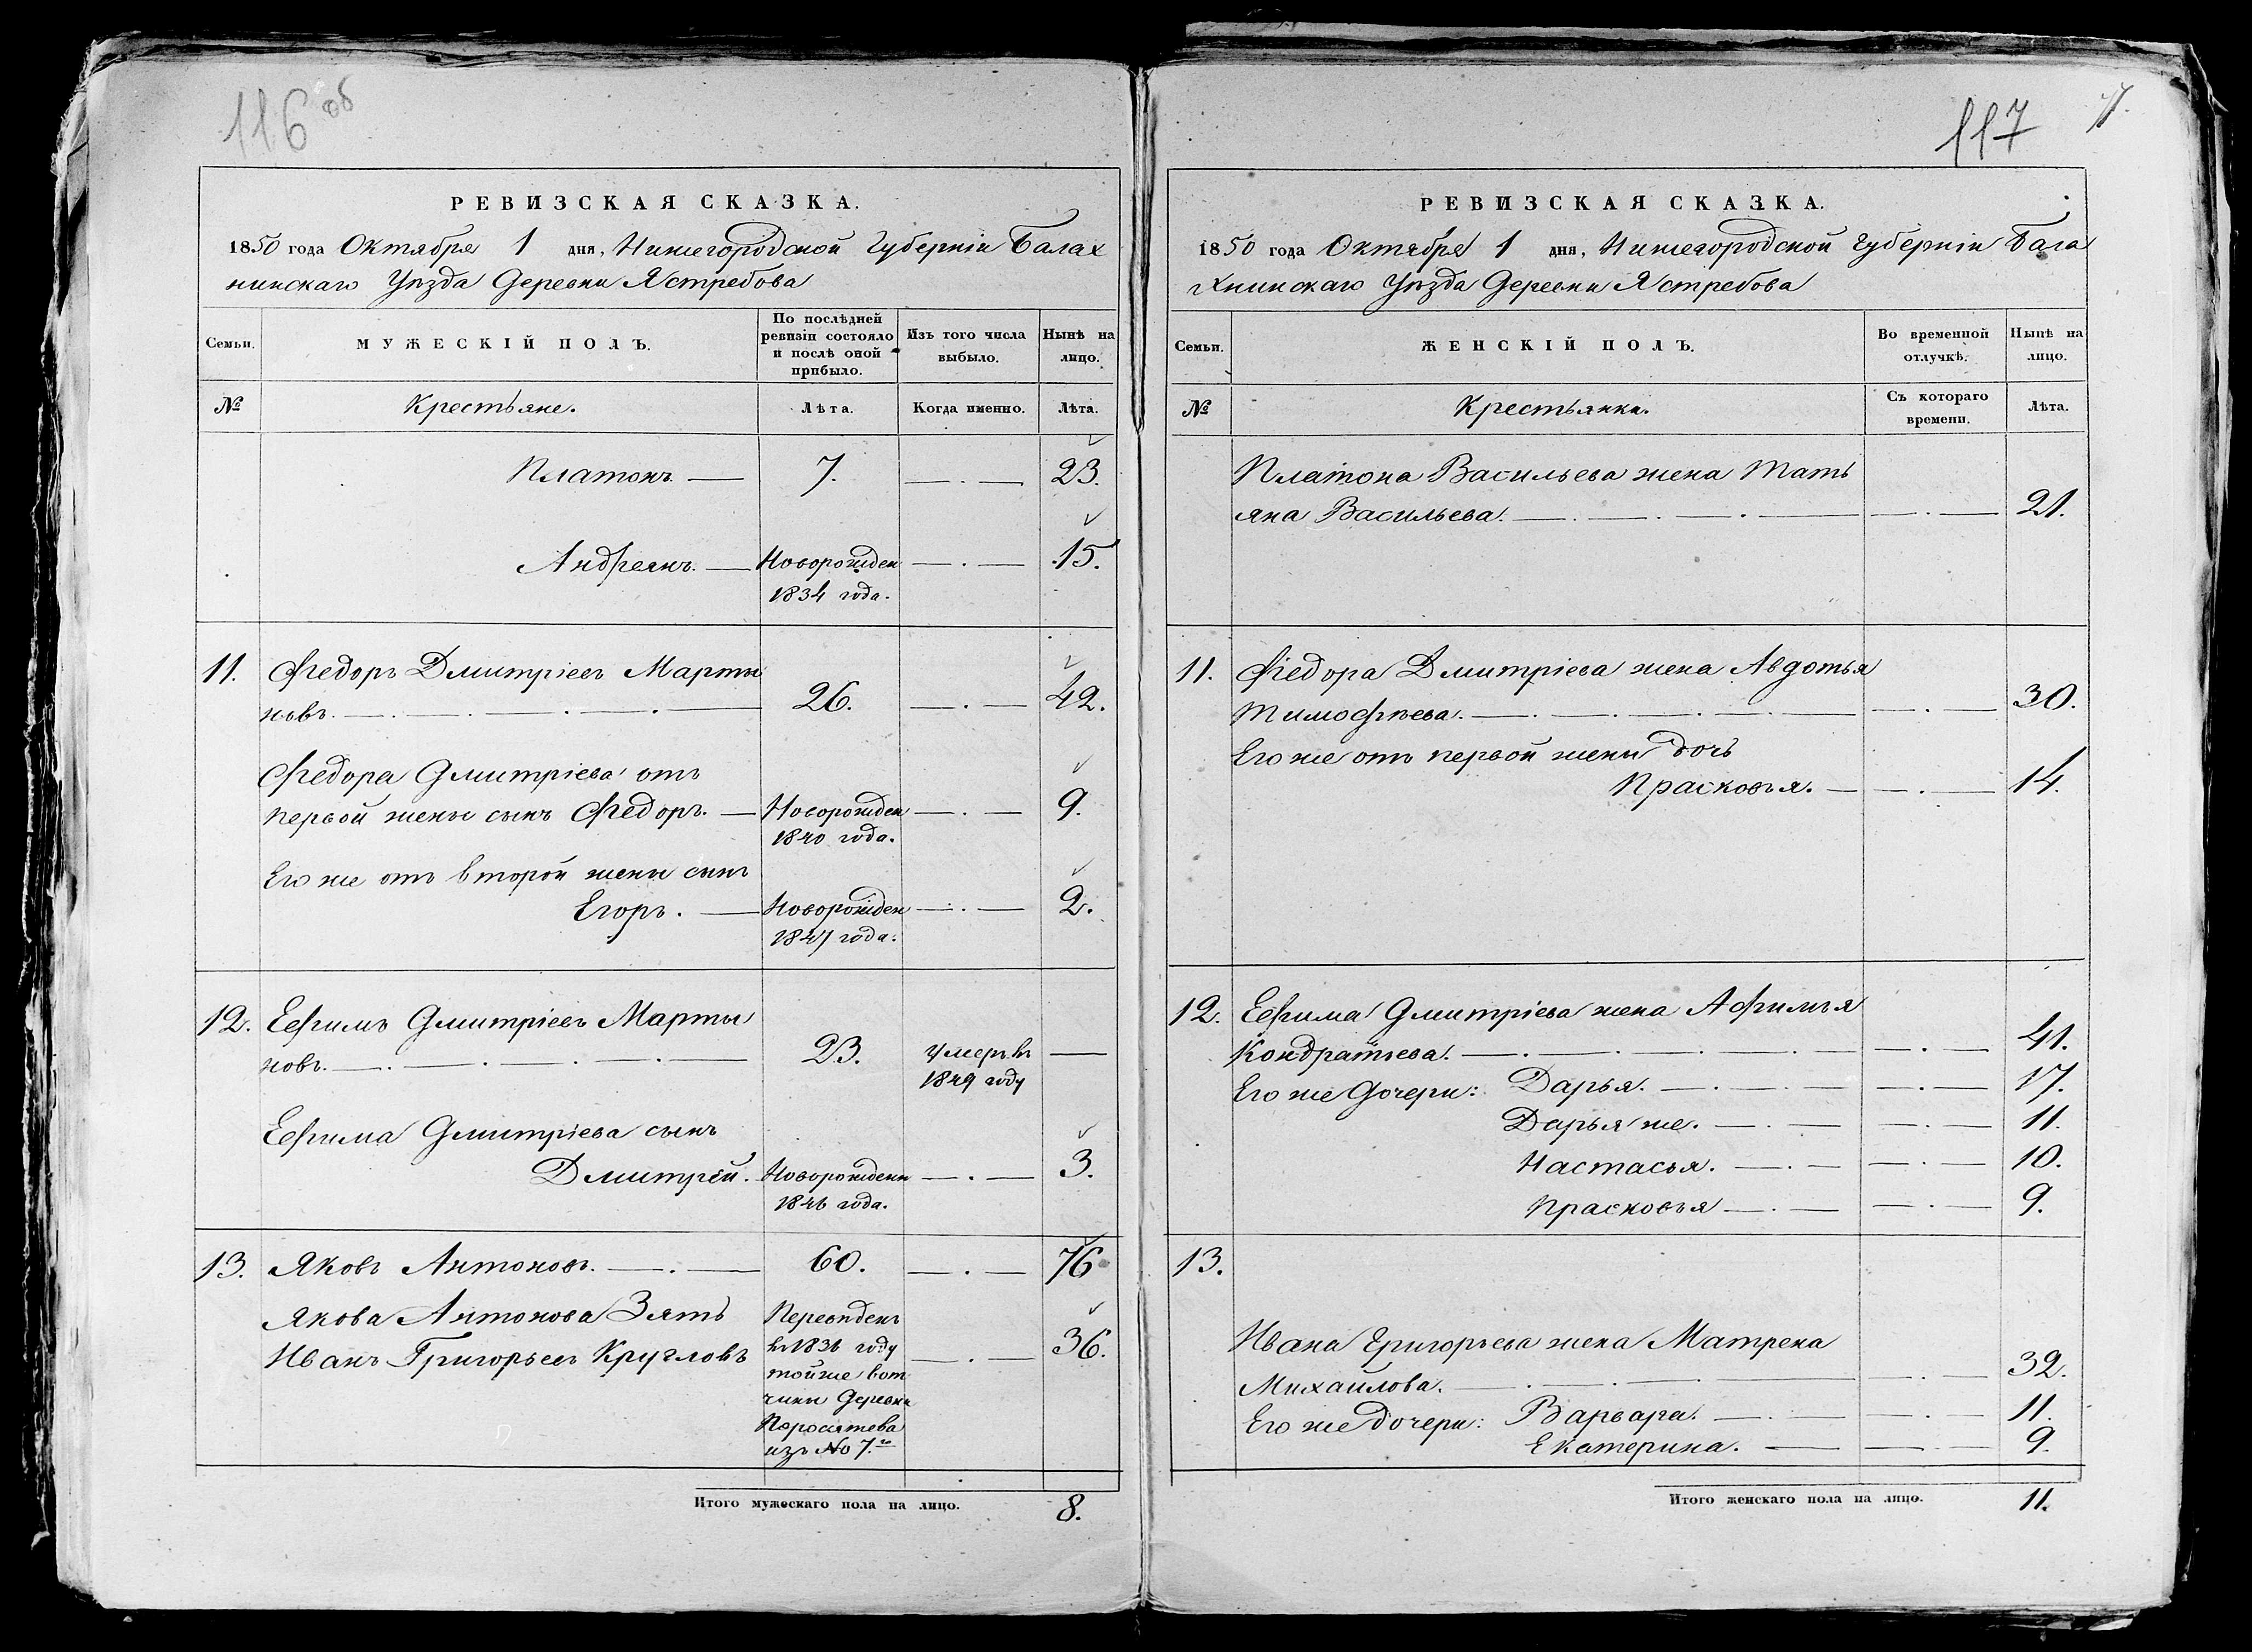 116 об
РЕВИЗСКАЯ СКАЗКА.
1850 года Октября 1 дня, Нижегородской Губернiи Балах
нинскаго Уѣзда Деревни Ястребова
Семьи.
МУЖЕСКIЙ ПОЛЪ.
По послѣдней ревизiи состояло и послѣ оной прибыло.
Изъ того числа выбыло.
Нынѣ на лицо.
№
Крестьяне.
Лѣта.
Когда именно.
Лѣта.
Платонъ. — 7. — . — 23.
Андреянъ. — Новорожден — . — 15.
1834 года.
11. Федоръ Дмитрiевъ Марты
новъ. — . — . — . — . — 26. — . — 42.
Федора Дмитрiева отъ
первой жены сынъ Федоръ. — Новорожден — . — 9.
1840 года.
Его же отъ второй жены сынъ
Егоръ. — Новорожден — . — 2.
1847 года.
12. Ефимъ Дмитрiевъ Марты
новъ. — . — . — . — 23. умеръ въ —
1849 году
Ефима Дмитрiева сынъ
Дмитрiй. Новорожденн — . — 3.
1846 года.
13. Яковъ Антоновъ. — . — 60. — . — 76
Якова Антонова Зять Переведенъ
Иванъ Григорьевъ Кругловъ въ 1836 году — . — 36.
тойже вот
чины Деревни
Поросятева
изъ № 7.го
Итого мужескаго пола на лицо. 8.
117 7.
РЕВИЗСКАЯ СКАЗКА.
1850 года Октября 1 дня, Нижегородской Губернiи Бала
хнинскаго Уѣзда Деревни Ястребова
Семьи.
ЖЕНСКIЙ ПОЛЪ.
Во временной отлучкѣ.
Нынѣ на лицо.
№
Крестьянки.
Съ котораго времени.
Лѣта.
Платона Васильева жена Тать
яна Васильева. — . — . — . — — . — 21.
11. Федора Дмитрiева жена Авдотья
Тимофѣева. — . — . — . — — . — 30.
Его же отъ первой жены дочь
Прасковья. — — . — 14.
12. Ефима Дмитрiева жена Афимья
Кондратьева. — . — . — . — . — — . — 41.
Его же Дочери: Дарья. — . — . — — . — 17.
Дарья же. — . — — . — 11.
Настасья. — . — — . — 10.
Прасковья — . — — . — 9.
13.
Ивана Григорьева жена Матрена
Михаилова. — . — . — . — — . — 32.
Его же дочери: Варвара. — . — — . — 11.
Екатерина. — — — . — 9.
Итого женскаго пола на лицо. 11.